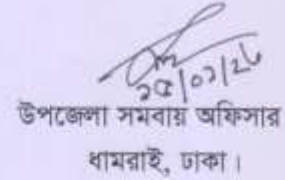 ২৫/০১/২৬
উপজেলা সমবায় অফিসার
ধামরাই, ঢাকা।